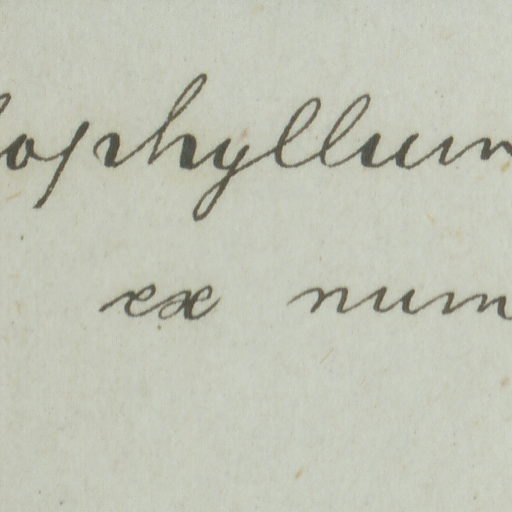 lophyllum
ex num